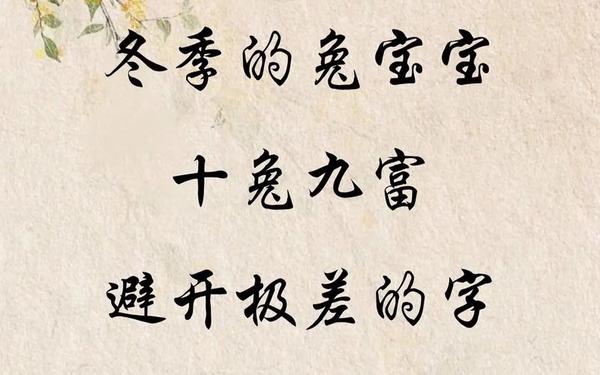 冬季的兔宝宝
十兔九富
避开极差的字